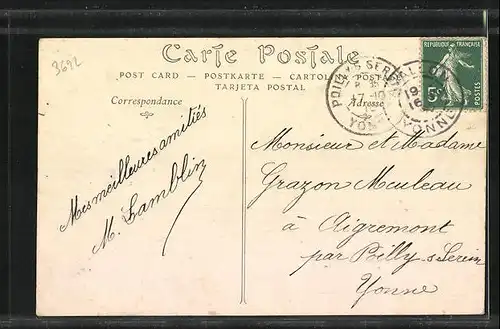 3692
Carte Postale
POST CARD – POSTKARTE – CARTOLINA POSTALE
TARJETA POSTAL
Correspondance
Adresse
RÉPUBLIQUE FRANÇAISE
5c
POSTES
POILLY S SEREIN
YONNE
YONNE
Mes meilleures amitiés
M. Lamblin
Monsieur et Madame
Grazon Meuleau
à Aigremont
par Poilly s/Serein
Yonne